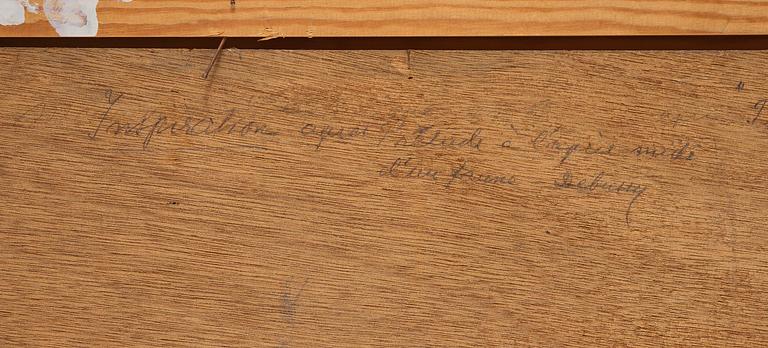 Inspiration après Prélude à l'après-midi
d'un faune Debussy